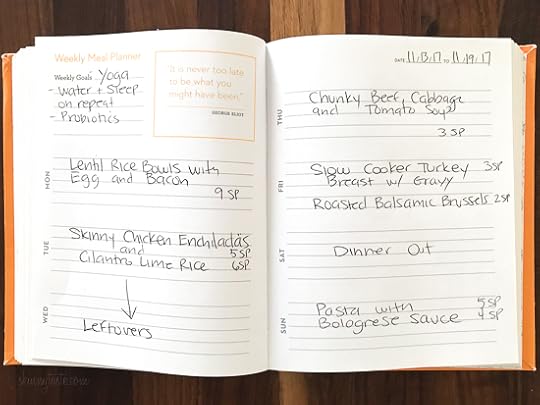 Weekly Meal Planner
Weekly Goals: Yoga
- Water + Sleep
on repeat
- Probiotics
"It is never too late
to be what you
might have been."
GEORGE ELIOT
MON
Lentil Rice Bowls with
Egg and Bacon
9 SP
TUE
Skinny Chicken Enchiladas
and 5 SP
Cilantro Lime Rice 6 SP
WED
Leftovers
skinnytaste.com
DATE 11/13/17 TO 11/19/17
THU
Chunky Beef, Cabbage
and Tomato Soup
3 SP
FRI
Slow Cooker Turkey 3 SP
Breast w/ Gravy
Roasted Balsamic Brussels 2 SP
SAT
Dinner Out
SUN
Pasta with 5 SP
Bolognese Sauce 4 SP